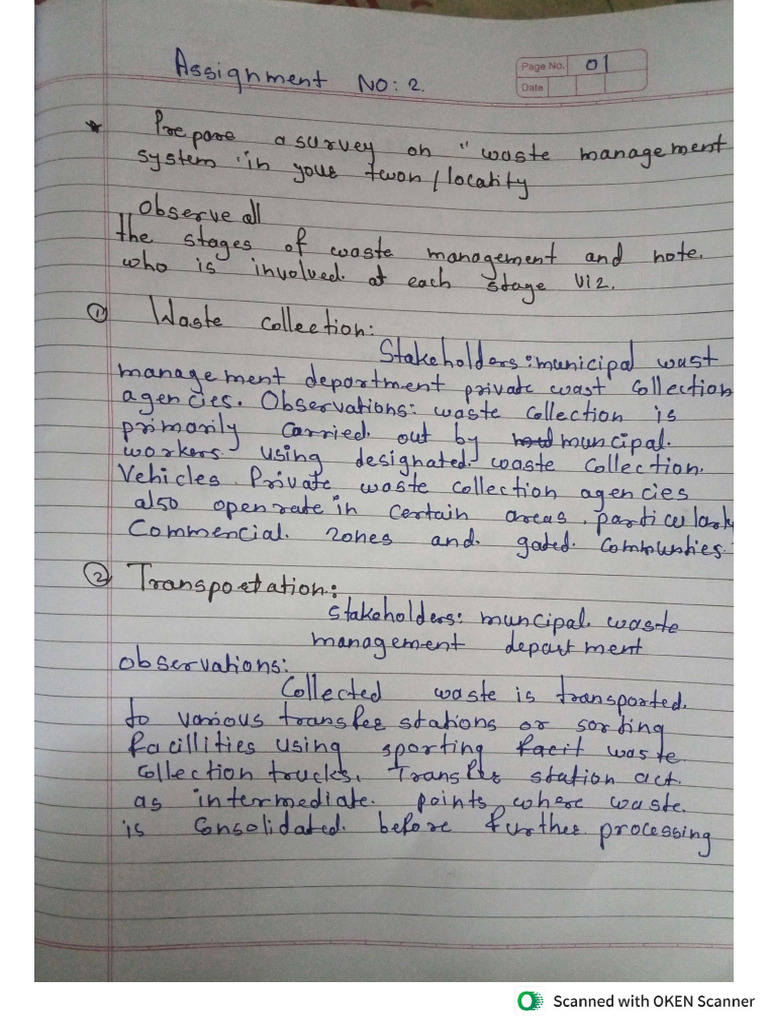 Assignment NO: 2.
Page No. 01
Date
* Prepare a survey on "waste management
system" in your twon/locality
Observe all
the stages of waste management and note.
who is involved. at each stage viz.
① Waste collection:
Stakeholders: municipal wast
management department private wast collection
agencies. Observations: waste collection is
primarily carried out by muncipal.
workers using designated waste collection.
Vehicles. Private waste collection agencies
also openrate in certain areas, particularly
Commencial zones and gated communties.
② Transpoetation:
stakeholders: muncipal waste
management department
observations:
Collected waste is transported.
to various transfer stations or sorting
facillities using sporting facit waste.
Collection trucks. Transfer station act.
as intermediate. points, where waste.
is consolidated. before further processing
Scanned with OKEN Scanner